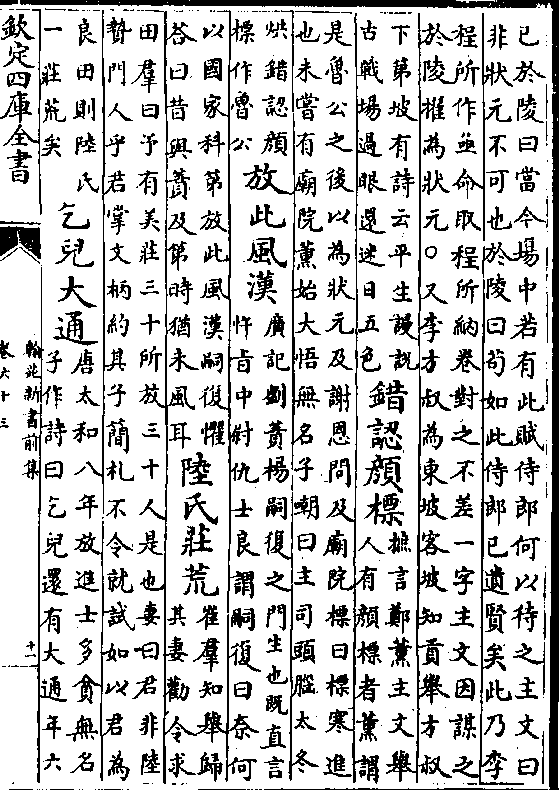 已於陵曰當今場中若有此賦侍郎何以待之主文曰
非狀元不可也於陵曰苟如此侍郎已遺賢矣此乃李
程所作亟命取程所納卷對之不差一字主文因謀之
於陵擢為狀元○又李方叔為東坡客坡知貢舉方叔
下第坡有詩云平生謾說
古戰場過眼還迷日五色
錯認顔標
摭言鄭薰主文舉
人有顔標者薰謂
是魯公之後以為狀元及謝恩問及廟院標曰標寒進
也未嘗有廟院薰始大悟無名子嘲曰主司頭腦太冬
烘錯認顔
標作魯公
放此風漢
廣記劉蕡楊嗣復之門生也既直言
忤旨中尉仇士良謂嗣復曰奈何
以國家科第放此風漢嗣復懼
荅曰昔與蕡及第時猶未風耳
陸氏莊荒
崔羣知舉歸
其妻勸令求
田羣曰予有美莊三十所放三十人是也妻曰君非陸
贄門人乎君掌文柄約其子簡札不令就試如以君為
良田則陸氏
一莊荒矣
乞兒大通
唐太和八年放進士多貧無名
子作詩曰乞兒還有大通年六
欽定四庫全書
翰苑新書前集
卷六十三
十一